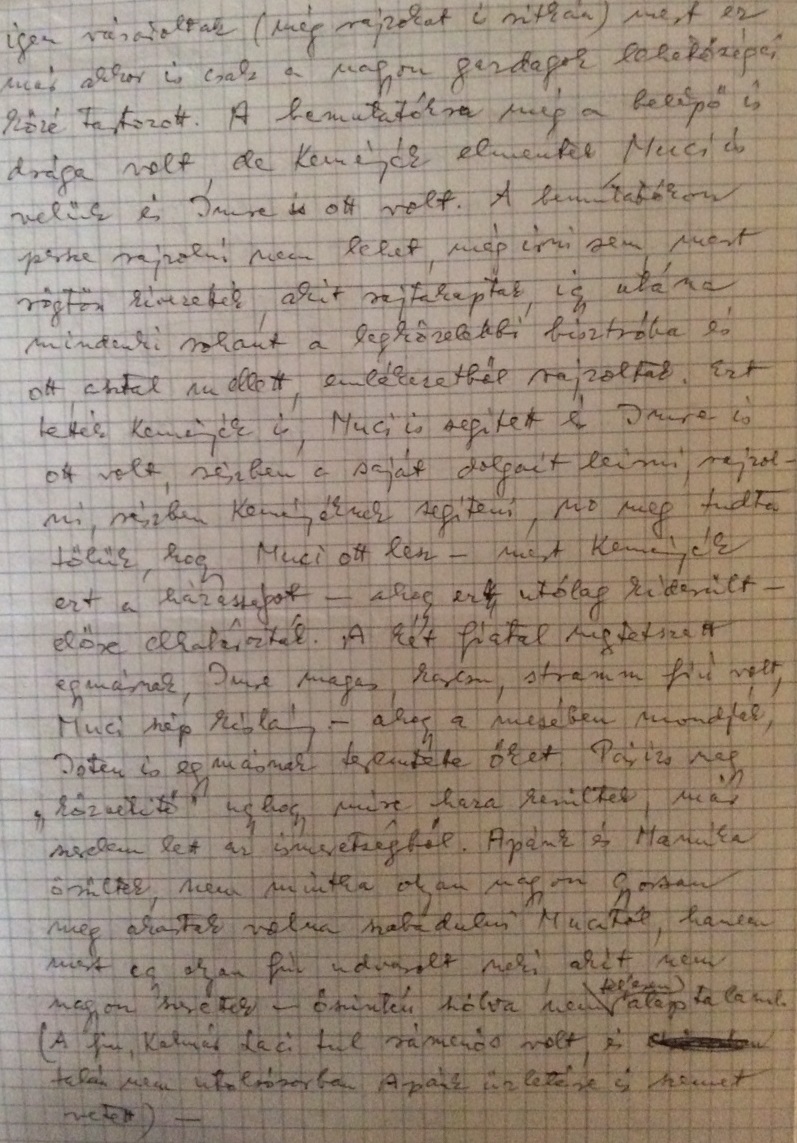 igen vásároltak (még rajzokat is ritkán) mert ez
már akkor is csak a nagyon gazdagok lehetőségei
közé tartozott. A bemutatókra még a belépő is
drága volt, de Keményék elmentek Muci is
velük és Imre is ott volt. A bemutatókon
persze rajzolni nem lehet, még írni sem, mert
rögtön kivezetik, akit rajtakaptak, így utána
mindenki rohant a legközelebbi bisztróba és
ott, asztal mellett, emlékezetből rajzoltak. Ezt
tették Keményék is, Muci is segített és Imre is
ott volt, részben a saját dolgait leírni, rajzol-
ni, részben Keményéknek segíteni, no meg tudta
tőlük, hogy Muci ott lesz – mert Keményék
ezt a házasságot – ahogy ez utólag kiderült –
előre elhatározták. A két fiatal megtetszett
egymásnak, Imre magas, karcsú, stramm fiú volt,
Muci szép kislány – ahogy a mesében mondják,
Isten is egymásnak teremtette őket. Párizs meg
„közvetítő" úgyhogy mire haza kerültek, már
szerelem lett az ismeretségből. Apánk és Mamika
örültek, nem mintha olyan nagyon gyorsan
meg akartak volna szabadulni Mucitól, hanem
mert egy olyan fiú udvarolt neki akit nem
nagyon szerettek – őszintén szólva nem teljesen alaptalanul.
(A fiú, Kalmár Laci túl rámenős volt, és
talán nem utolsósorban Apánk üzletére is szemet
vetett) –